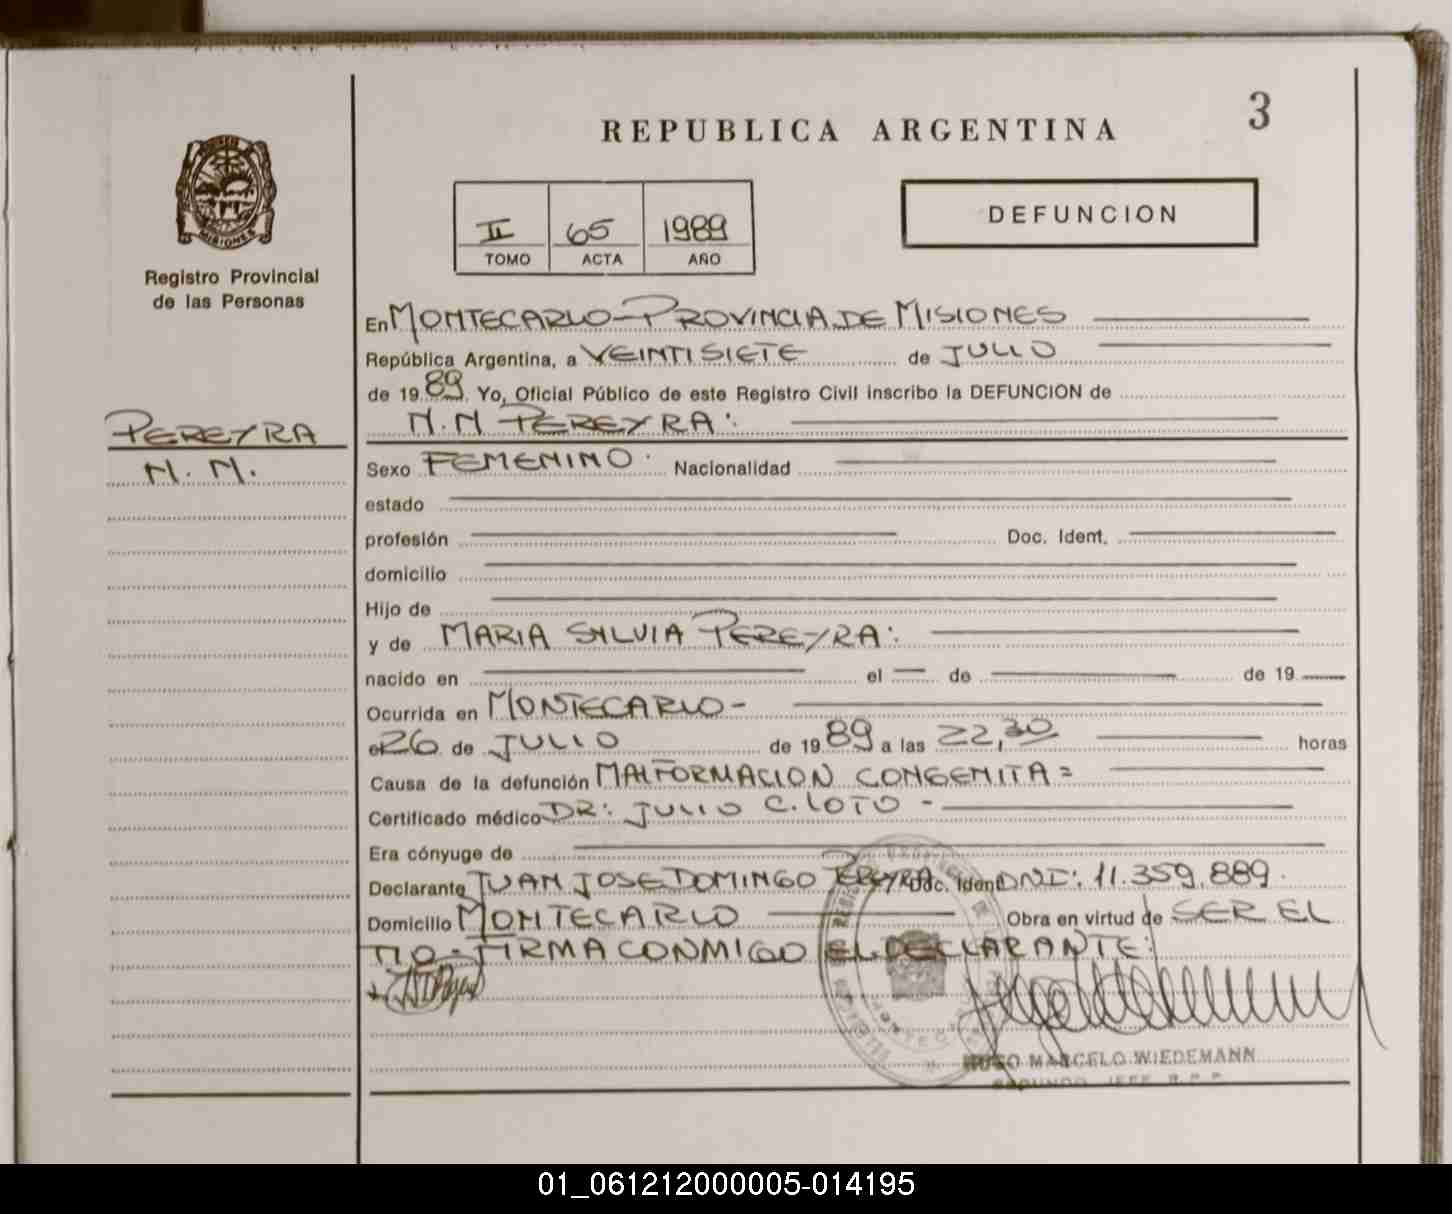 3
REPUBLICA ARGENTINA
II 65 1989
TOMO ACTA AÑO
DEFUNCION
MISIONES
Registro Provincial
de las Personas
En MONTECARLO - PROVINCIA DE MISIONES
República Argentina, a VEINTISIETE de JULIO
de 19 89. Yo, Oficial Público de este Registro Civil inscribo la DEFUNCION de
N.N PEREYRA:
PEREYRA
N. N.
Sexo FEMENINO. Nacionalidad
estado
profesión Doc. Ident.
domicilio
Hijo de
y de MARIA SILVIA PEREYRA:
nacido en el de de 19
Ocurrida en MONTECARLO-
el 26 de JULIO de 19 89 a las 22,30 horas
Causa de la defunción MALFORMACION CONGENITA =
Certificado médico DR: JULIO C. LOTO -
Era cónyuge de
Declarante JUAN JOSE DOMINGO PEREYRA Doc. Ident DNI: 11.359.889.
Domicilio MONTECARLO Obra en virtud de SER EL
TIO - FIRMA CONMIGO EL DECLARANTE:
HUGO MARCELO WIEDEMANN
SEGUNDO JEFE R.P.P.
01_061212000005-014195